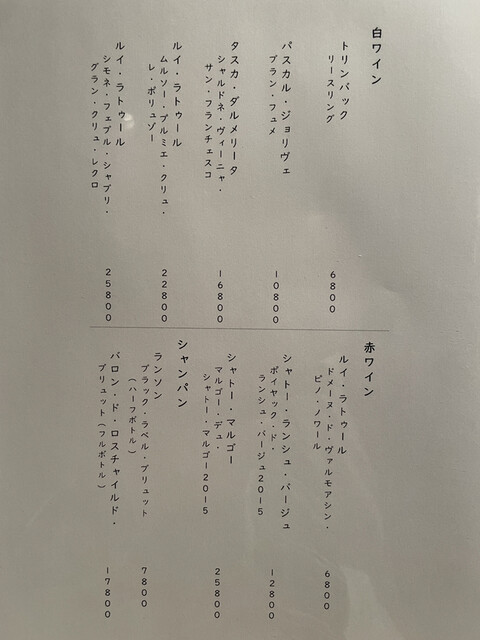 白ワイン
トリンバック
リースリング
6800
パスカル・ジョリヴェ
ブラン・フュメ
10800
タスカ・ダルメリータ
シャルドネ・ヴィーニャ・
サン・フランチェスコ
16800
ルイ・ラトゥール
ムルソー・プルミエ・クリュ・
レ・ポリュゾー
22800
ルイ・ラトゥール
シモネ・フェブル・シャブリ・
グラン・クリュ・レクロ
25800
赤ワイン
ルイ・ラトゥール
ドメーヌ・ド・ヴァルモアシン・
ピノ・ノワール
6800
シャトー・ランシュ・バージュ
ポイヤック・ド・
ランシュ・バージュ2015
12800
シャトー・マルゴー
マルゴー・デュ・
シャトー・マルゴー2015
25800
シャンパン
ランソン
ブラック・ラベル・ブリュット
(ハーフボトル)
7800
バロン・ド・ロスチャイルド・
ブリュット(フルボトル)
17800